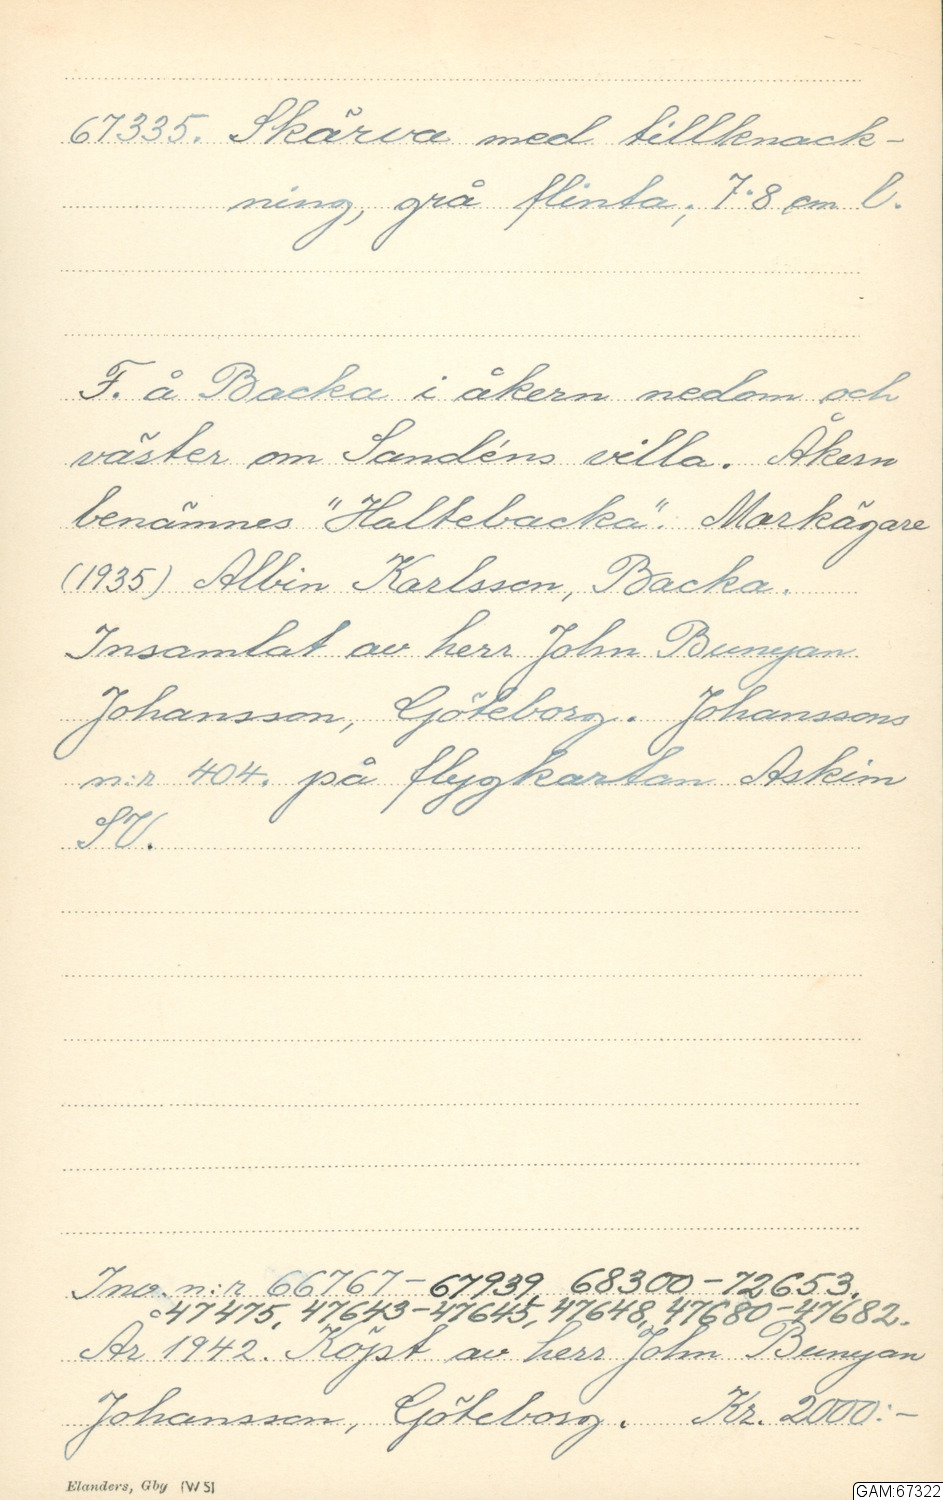 67335. Skärva med tillknack-
ning, grå flinta; 7·8 cm l.
F. å Backa i åkern nedom och
väster om Sandéns villa. Åkern
benämnes "Haltebacka". Markägare
(1935) Albin Karlsson, Backa.
Insamlat av herr John Bunyan
Johansson, Göteborg. Johanssons
n:r 404. på flygkartan Askim
SV.
Inv. n:r 66767-67939, 68300-72653,
47475, 47643-47645, 47648, 47680-47682.
År 1942. Köpt av herr John Bunyan
Johansson, Göteborg. Kr. 2000:-
Elanders, Gbg (W 5)
GAM:67322